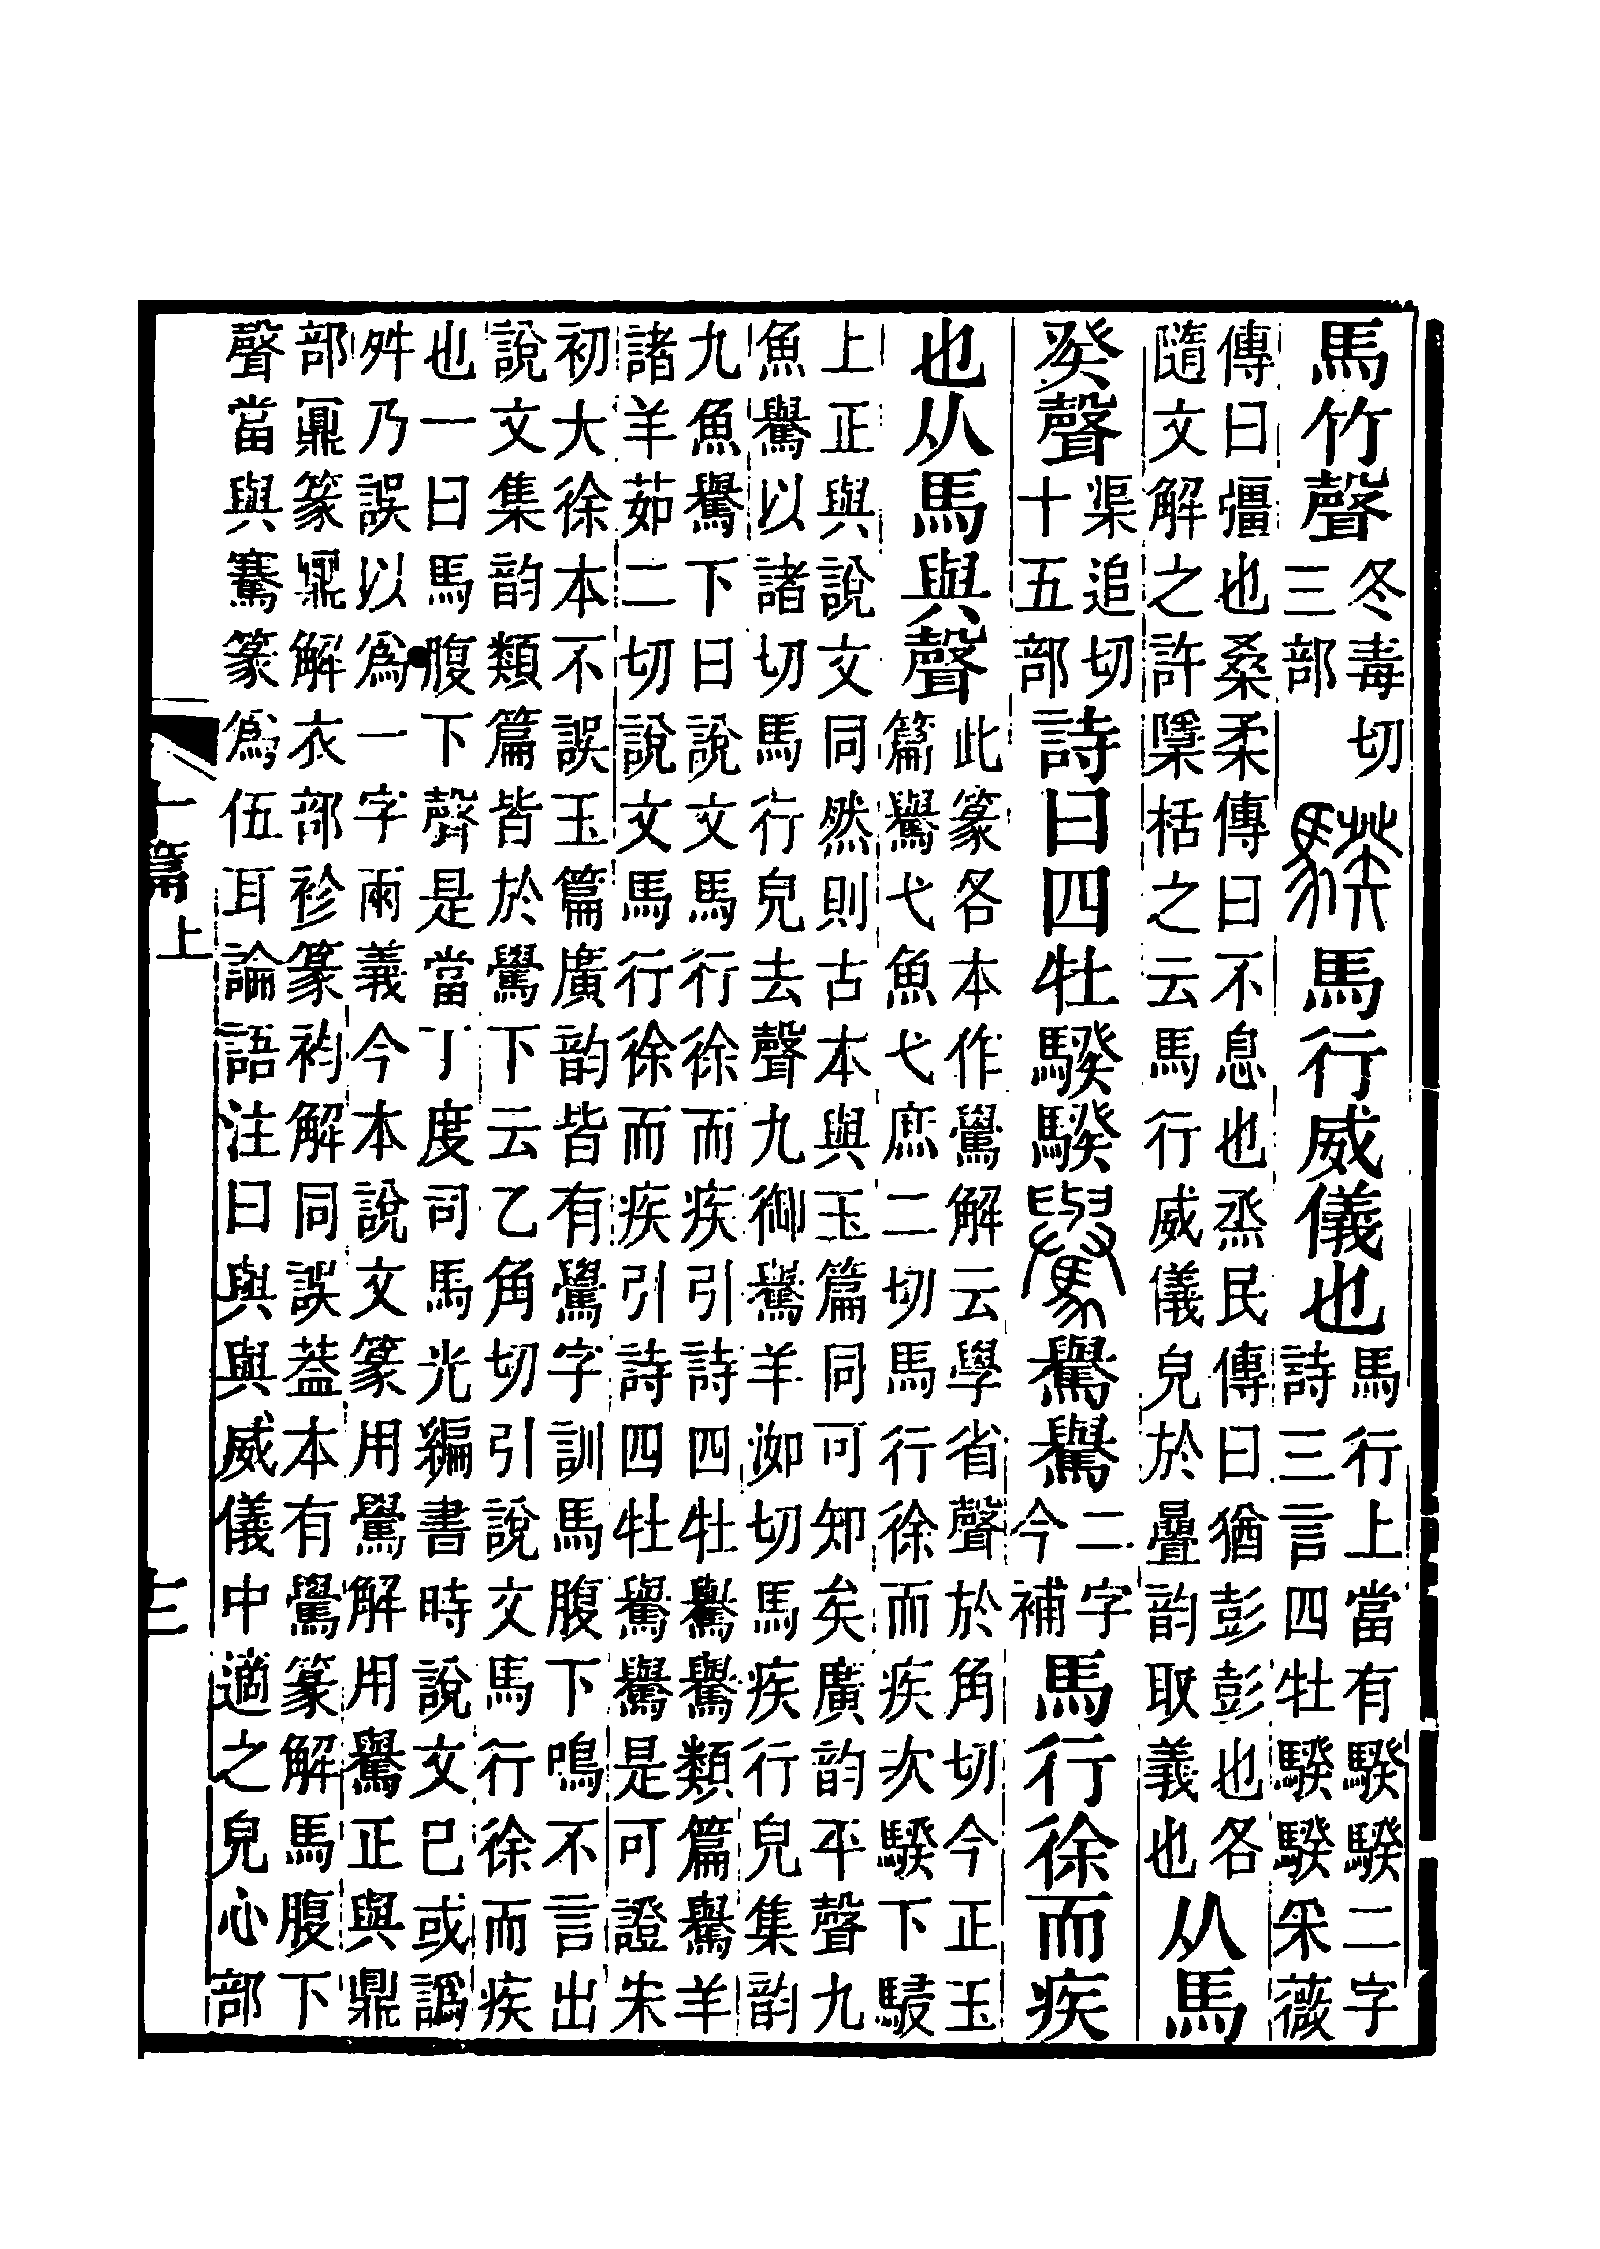 馬竹聲
冬毒切
三部
騤
馬行威儀也
馬行上當有騤騤二字
詩三言四牡騤騤采薇
傳曰彊也桑柔傳曰不息也烝民傳曰猶彭彭也各
隨文解之許檃栝之云馬行威儀皃於疊韵取義也
从馬
癸聲
渠追切
十五部
詩曰四牡騤騤
𩦡
𩦡𩦡
二字
今補
馬行徐而疾
也从馬與聲
此篆各本作⿱𦥯馬解云學省聲於角切今正玉
篇𩦡弋魚弋庶二切馬行徐而疾次騤下駸
上正與說文同然則古本與玉篇同可知矣廣韵平聲九
魚𩦡以諸切馬行皃去聲九御𩦡羊洳切馬疾行皃集韵
九魚𩦡下曰說文馬行徐而疾引詩四牡𩦡𩦡類篇𩦡羊
諸羊茹二切說文馬行徐而疾引詩四牡𩦡𩦡是可證朱
初大徐本不誤玉篇廣韵皆有⿱𦥯馬字訓馬腹下鳴不言出
說文集韵類篇皆於⿱𦥯馬下云乙角切引說文馬行徐而疾
也一曰馬腹下聲是當丁度司馬光編書時說文已或譌
舛乃誤以爲一字兩義今本說文篆用⿱𦥯馬解用𩦡正與鼎
部鼏篆鼏解衣部袗篆袀解同誤葢本有⿱𦥯馬篆解馬腹下
聲當與騫篆爲伍耳論語注曰與與威儀中適之皃心部
十篇上
十二